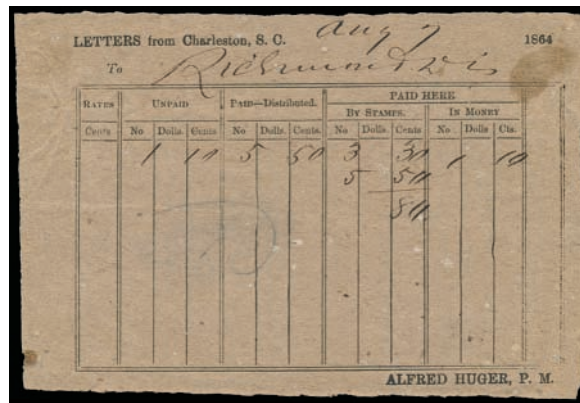 LETTERS from Charleston, S. C. Aug 7 1864
To Richmond Dis
RATES UNPAID PAID—Distributed. PAID HERE
BY STAMPS. IN MONEY
Cents No Dolls. Cents No Dolls. Cents. No Dolls. Cents No Dolls Cts.
1 10 5 50 3 30 1 10
5 50
80
ALFRED HUGER, P. M.